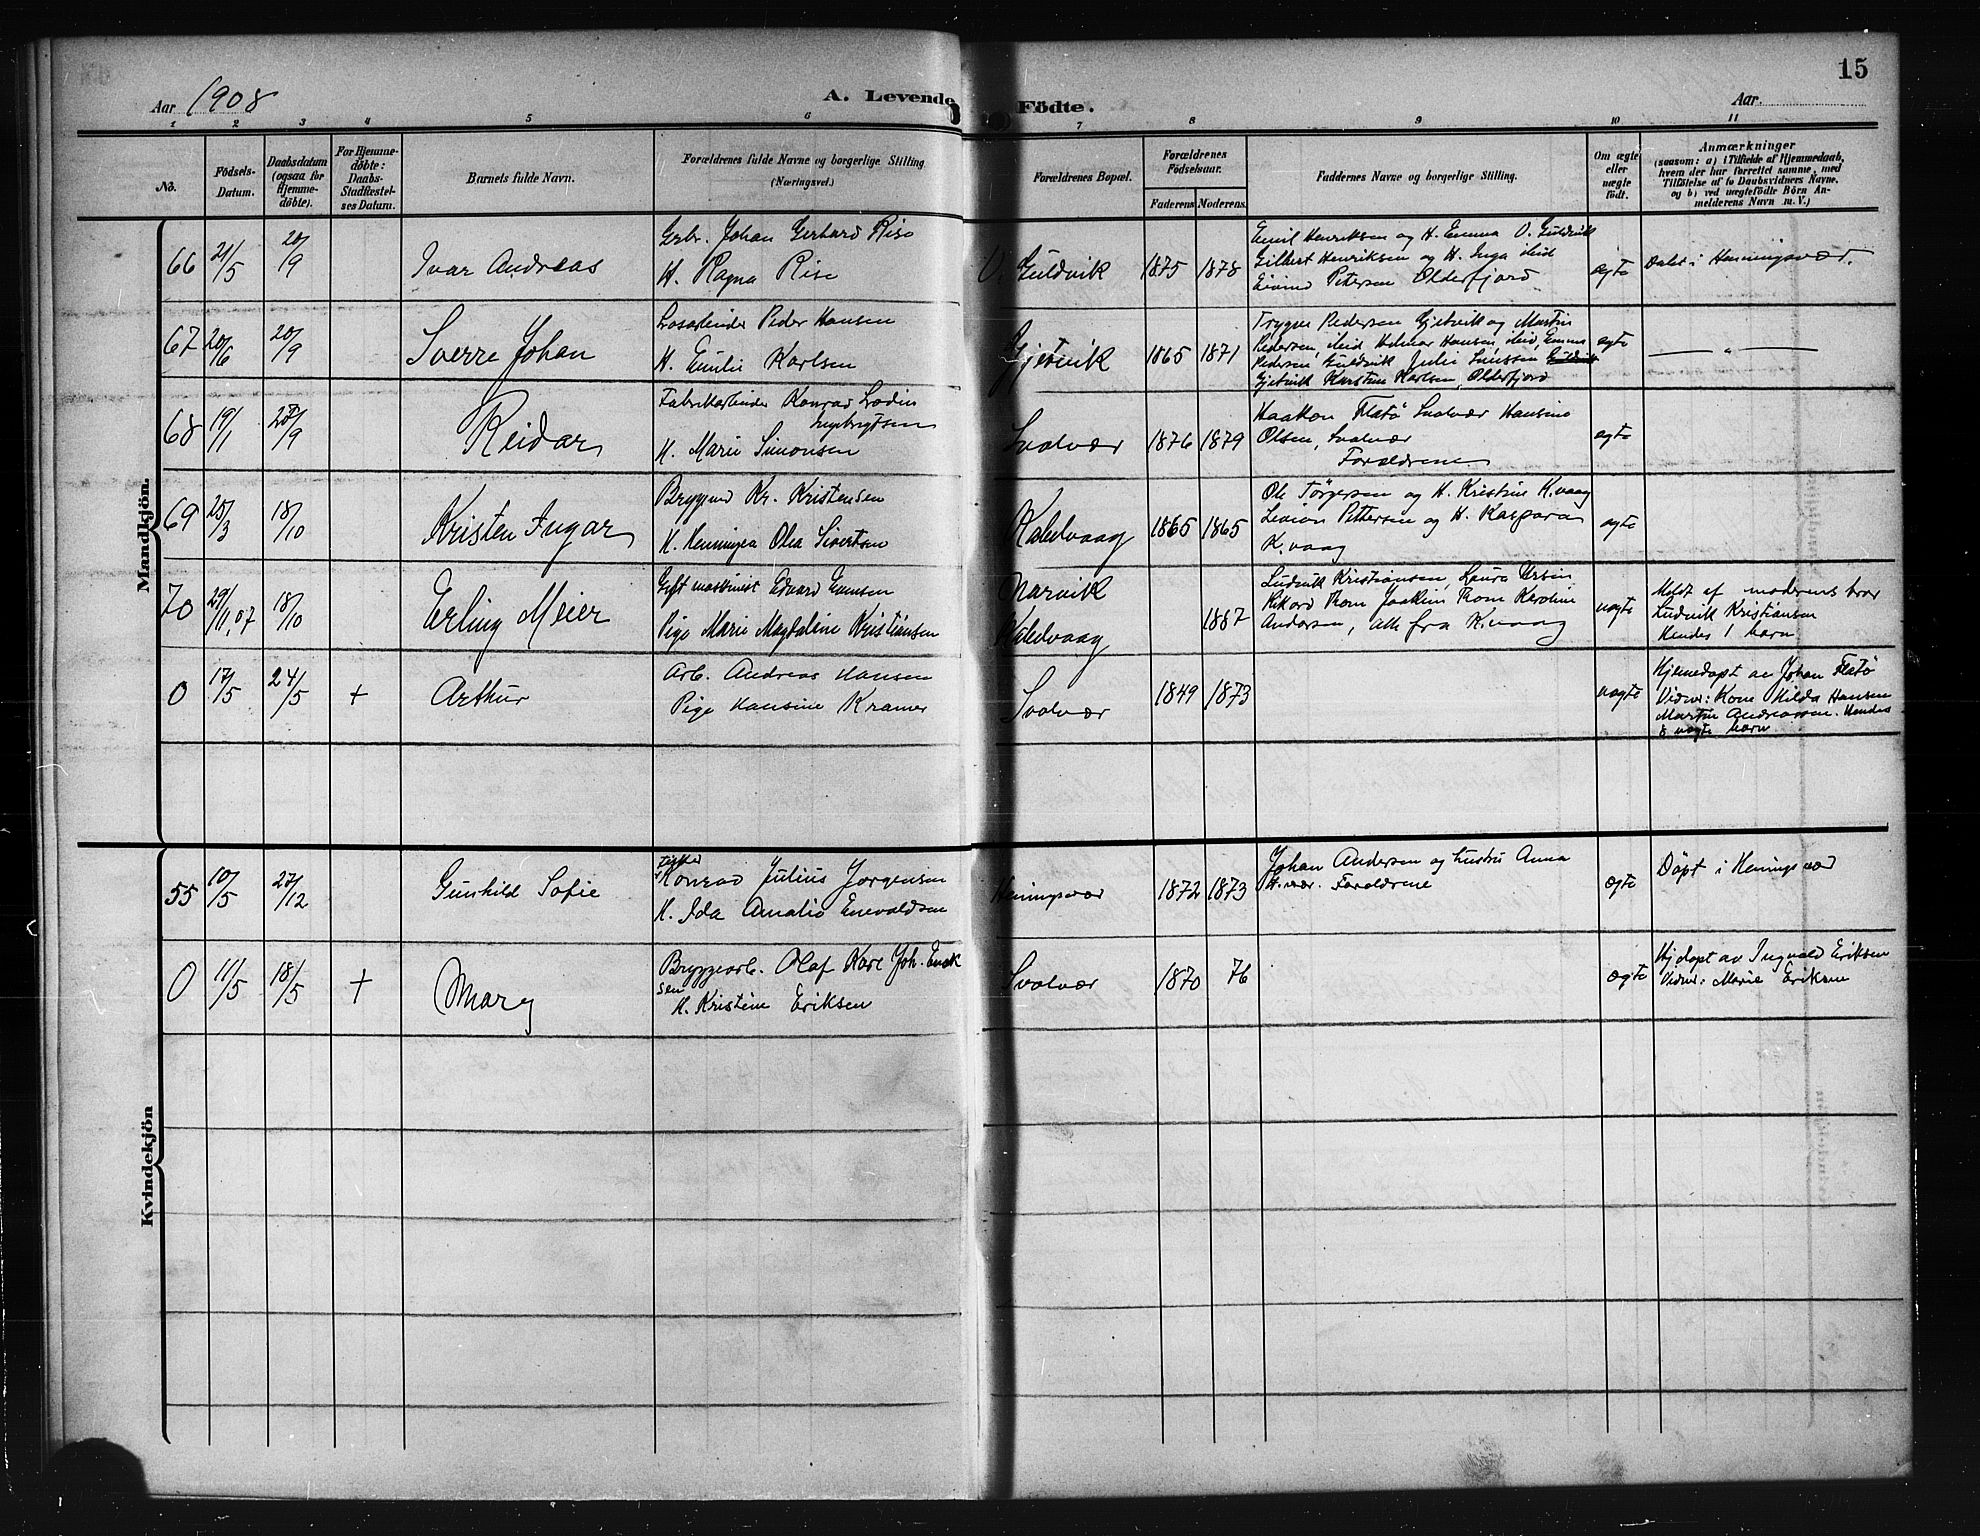 15
Aar 1908
A. Levende Födte.
Aar.
1 2 3 4 5 6 7 8 9 10 11
No.
Födsels-Datum.
Daabsdatum (ogsaa for Hjemme-döbte).
For Hjemme-döbte: Daabs-Stadfæstel-ses Datum.
Barnets fulde Navn.
Forældrenes fulde Navne og borgerlige Stilling
(Næringsvei.)
Forældrenes Bopæl.
Forældrenes Födselsaar.
Faderens Moderens.
Faddernes Navne og borgerlige Stilling.
Om ægte eller uægte födt.
Anmærkninger
(saasom: a) i Tilfælde af Hjemmedaab,
hvem der har forrettet samme, med
Tilföielse af to Daabsvidners Navne,
og b) ved uægtefödte Börn An-
melderens Navn m. V.)
Mandkjön.
66 21/5 20/9 Ivar Andreas
Grbr. Johan Gerhard Rise
H. Ragna Rise
O. Guldvik 1875 1878
Emil Henriksen og H. Emma O. Guldvik
Gilbert Henriksen og H. Inga ibid
Eivind Petersen Olderfjord
ægte
Døbt i Henningsvær.
67 20/6 20/9 Sverre Johan
Løsarbeider Peder Hansen
H. Emilie Karlsen
Gjetvik 1865 1871
Trygve Pedersen Gjetvik og Martin
Pedersen, ibid Helmer Hansen, ibid, Emma
Pedersen Guldvik Julie
Gjetvik Karstine Karlsen, Olderfjord
ægte
— " —
68 19/1 27/9 Reidar
Fabrikarbeider Konrad Lodin
Ingebrigtsen
H. Marie Simonsen
Svolvær 1876 1879
Haakon Flatø Svolvær Hansine
Olsen, Svolvær
Forældrene
ægte
69 25/3 18/10 Kristen Ingar
Bryggemd Kr. Kristensen
H. Henningea Olea Sivertsen
Kabelvaag 1865 1865
Ole Torgersen og H. Kristine K.vaag
Pettersen og H. Kaspara
K.vaag
ægte
70 29/11,07 18/10 Erling Meier
Gift maskinist Edvard Evensen
Pige Marie Magdaline Kristiansen
Narvik
Kabelvaag 1887
Ludvik Kristiansen, Laura Ursin
Rikard Thom Joakim Thom Karoline
Andersen, alle fra K.vaag
uægte
Meldt af moderens bror
Ludvik Kristiansen
Hendes 1 barn
0 17/5 24/5 + Arthur
Arb. Andreas Hansen
Pige Hansine Kramer
Svolvær 1849 1873
uægte
Hjemmedøpt av Johan Flatø
Vidner: Kone Hilda Hansen
Martin Andreassen. Hendes
8 uægte barn
Kvindekjön
55 10/5 27/12 Gunhild Sofie
Fisker
Konrad Julius Jørgensen
H. Ida Amalie Enevoldsen
Henningsvær 1872 1873
Johan Andersen og hustru Anna
H.vær. Forældrene
ægte
Døpt i Henningsvær
0 11/5 18/5 + Mary
Bryggearb. Olaf Karl Joh. Erik
sen
H. Kristine Eriksen
Svolvær 1870 76
ægte
Hjdøpt av Ingvald Eriksen
Vidner: Marie Eriksen